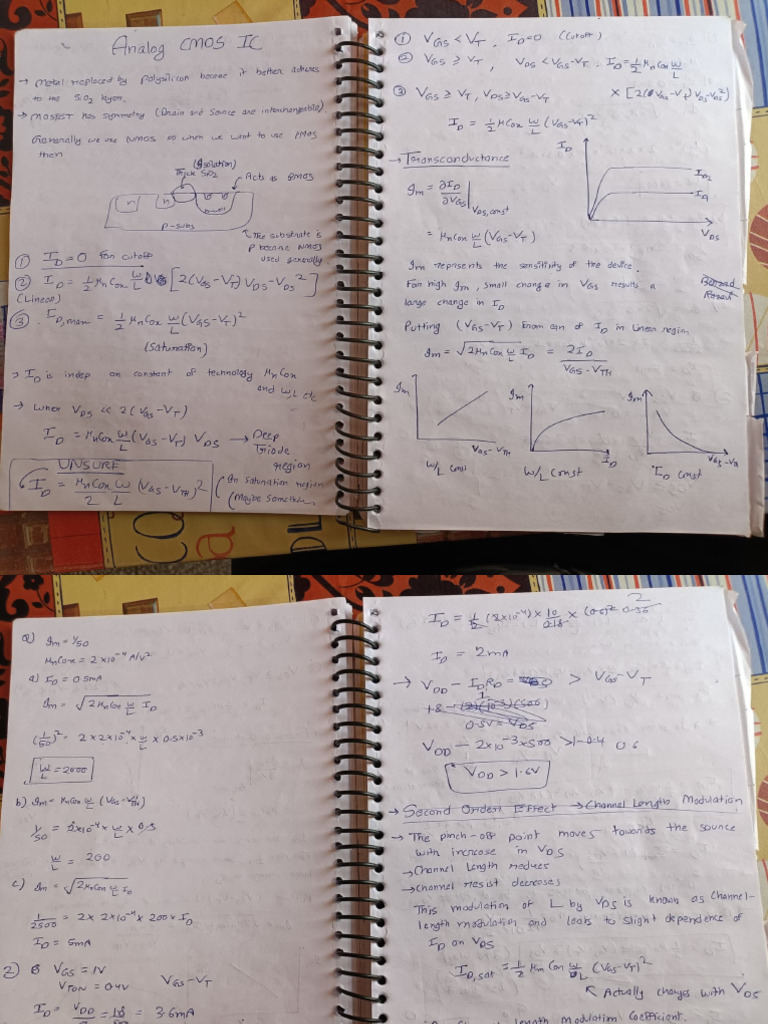 Analog CMOS IC
→ Metal replaced by Polysilicon because it better adheres
to the SiO2 layer.
→ MOSFET has symmetry (Drain and Source are interchangeable).
Generally we use NMOS when we want to use PMOS
then
(Isolation)
Thick SiO2
Acts as PMOS
n
n
n-well
P-subs
↖ The substrate is
P because NMOS
used generally.
① ID = 0 For cutoff
② ID = 1/2 μnCox W/L [2(VGS-VT) VDS - VDS²]
(Linear)
③ ID,max = 1/2 μnCox W/L (VGS-VT)²
(Saturation)
→ ID is indep on constant of technology μnCox
and W, L etc
→ When VDS << 2(VGS-VT)
ID = μnCox W/L (VGS-VT) VDS → Deep
Triode
region
UNSURE
ID = μnCox/2 W/L (VGS-VTH)²
(In saturation region
(Maybe sometimes
① VGS < VT, ID=0 (cutoff)
② VGS ≥ VT, VDS < VGS-VT. ID = 1/2 μnCox W/L
× [2(VGS-VT)VDS-VDS²]
③ VGS ≥ VT, VDS ≥ VGS-VT
ID = 1/2 μCox W/L (VGS-VT)²
→ Transconductance
gm = ∂ID/∂VGS | VDS, const
= μnCox W/L (VGS-VT)
ID
ID2
ID1
VDS
gm represents the sensitivity of the device.
For high gm, small change in VGS results a
large change in ID
Putting (VGS-VT) from eqn of ID in linear region
gm = √2μnCox W/L ID = 2ID/VGS-VTH
gm
VGS-VTH
W/L const
gm
ID
W/L const
gm
VGS-VTH
ID const
Q)
gm = 1/50
μnCox = 2×10⁻⁴ A/V²
a) ID = 0.5mA
gm = √2μnCox W/L ID
(1/50)² = 2×2×10⁻⁴ × W/L × 0.5×10⁻³
W/L = 2000
b) gm = μnCox W/L (VGS-VTH)
1/50 = 2×10⁻⁴ × W/L × 0.5
W/L = 200
c) gm = √2μnCox W/L ID
1/2500 = 2×2×10⁻⁴ × 200 × ID
ID = 5mA
2) VGS = 1V
VTON = 0.4V
VGS-VT
ID = VDD/ = 1.8/ = 3.6mA
ID = 1/2 (2×10⁻⁴) × 10/0.18 × (0.6)² 0.36
ID = 2mA
→ VDD - IDRD = > VGS-VT
1.8 - (2)(10⁻³)(500)
0.8V = VDS
VDD - 2×10⁻³×500 > 1-0.4 0.6
VDD > 1.6V
→ Second Order Effect → Channel Length Modulation
→ The pinch-off point moves towards the source
with increase in VDS
→ Channel Length reduces
→ channel resist decreases
This modulation of L by VDS is known as Channel-
length modulation and leads to slight dependence of
ID on VDS
ID,sat = 1/2 μn Cox W/L (VGS-VT)²
↖ Actually changes with VDS
length Modulation Coefficient.